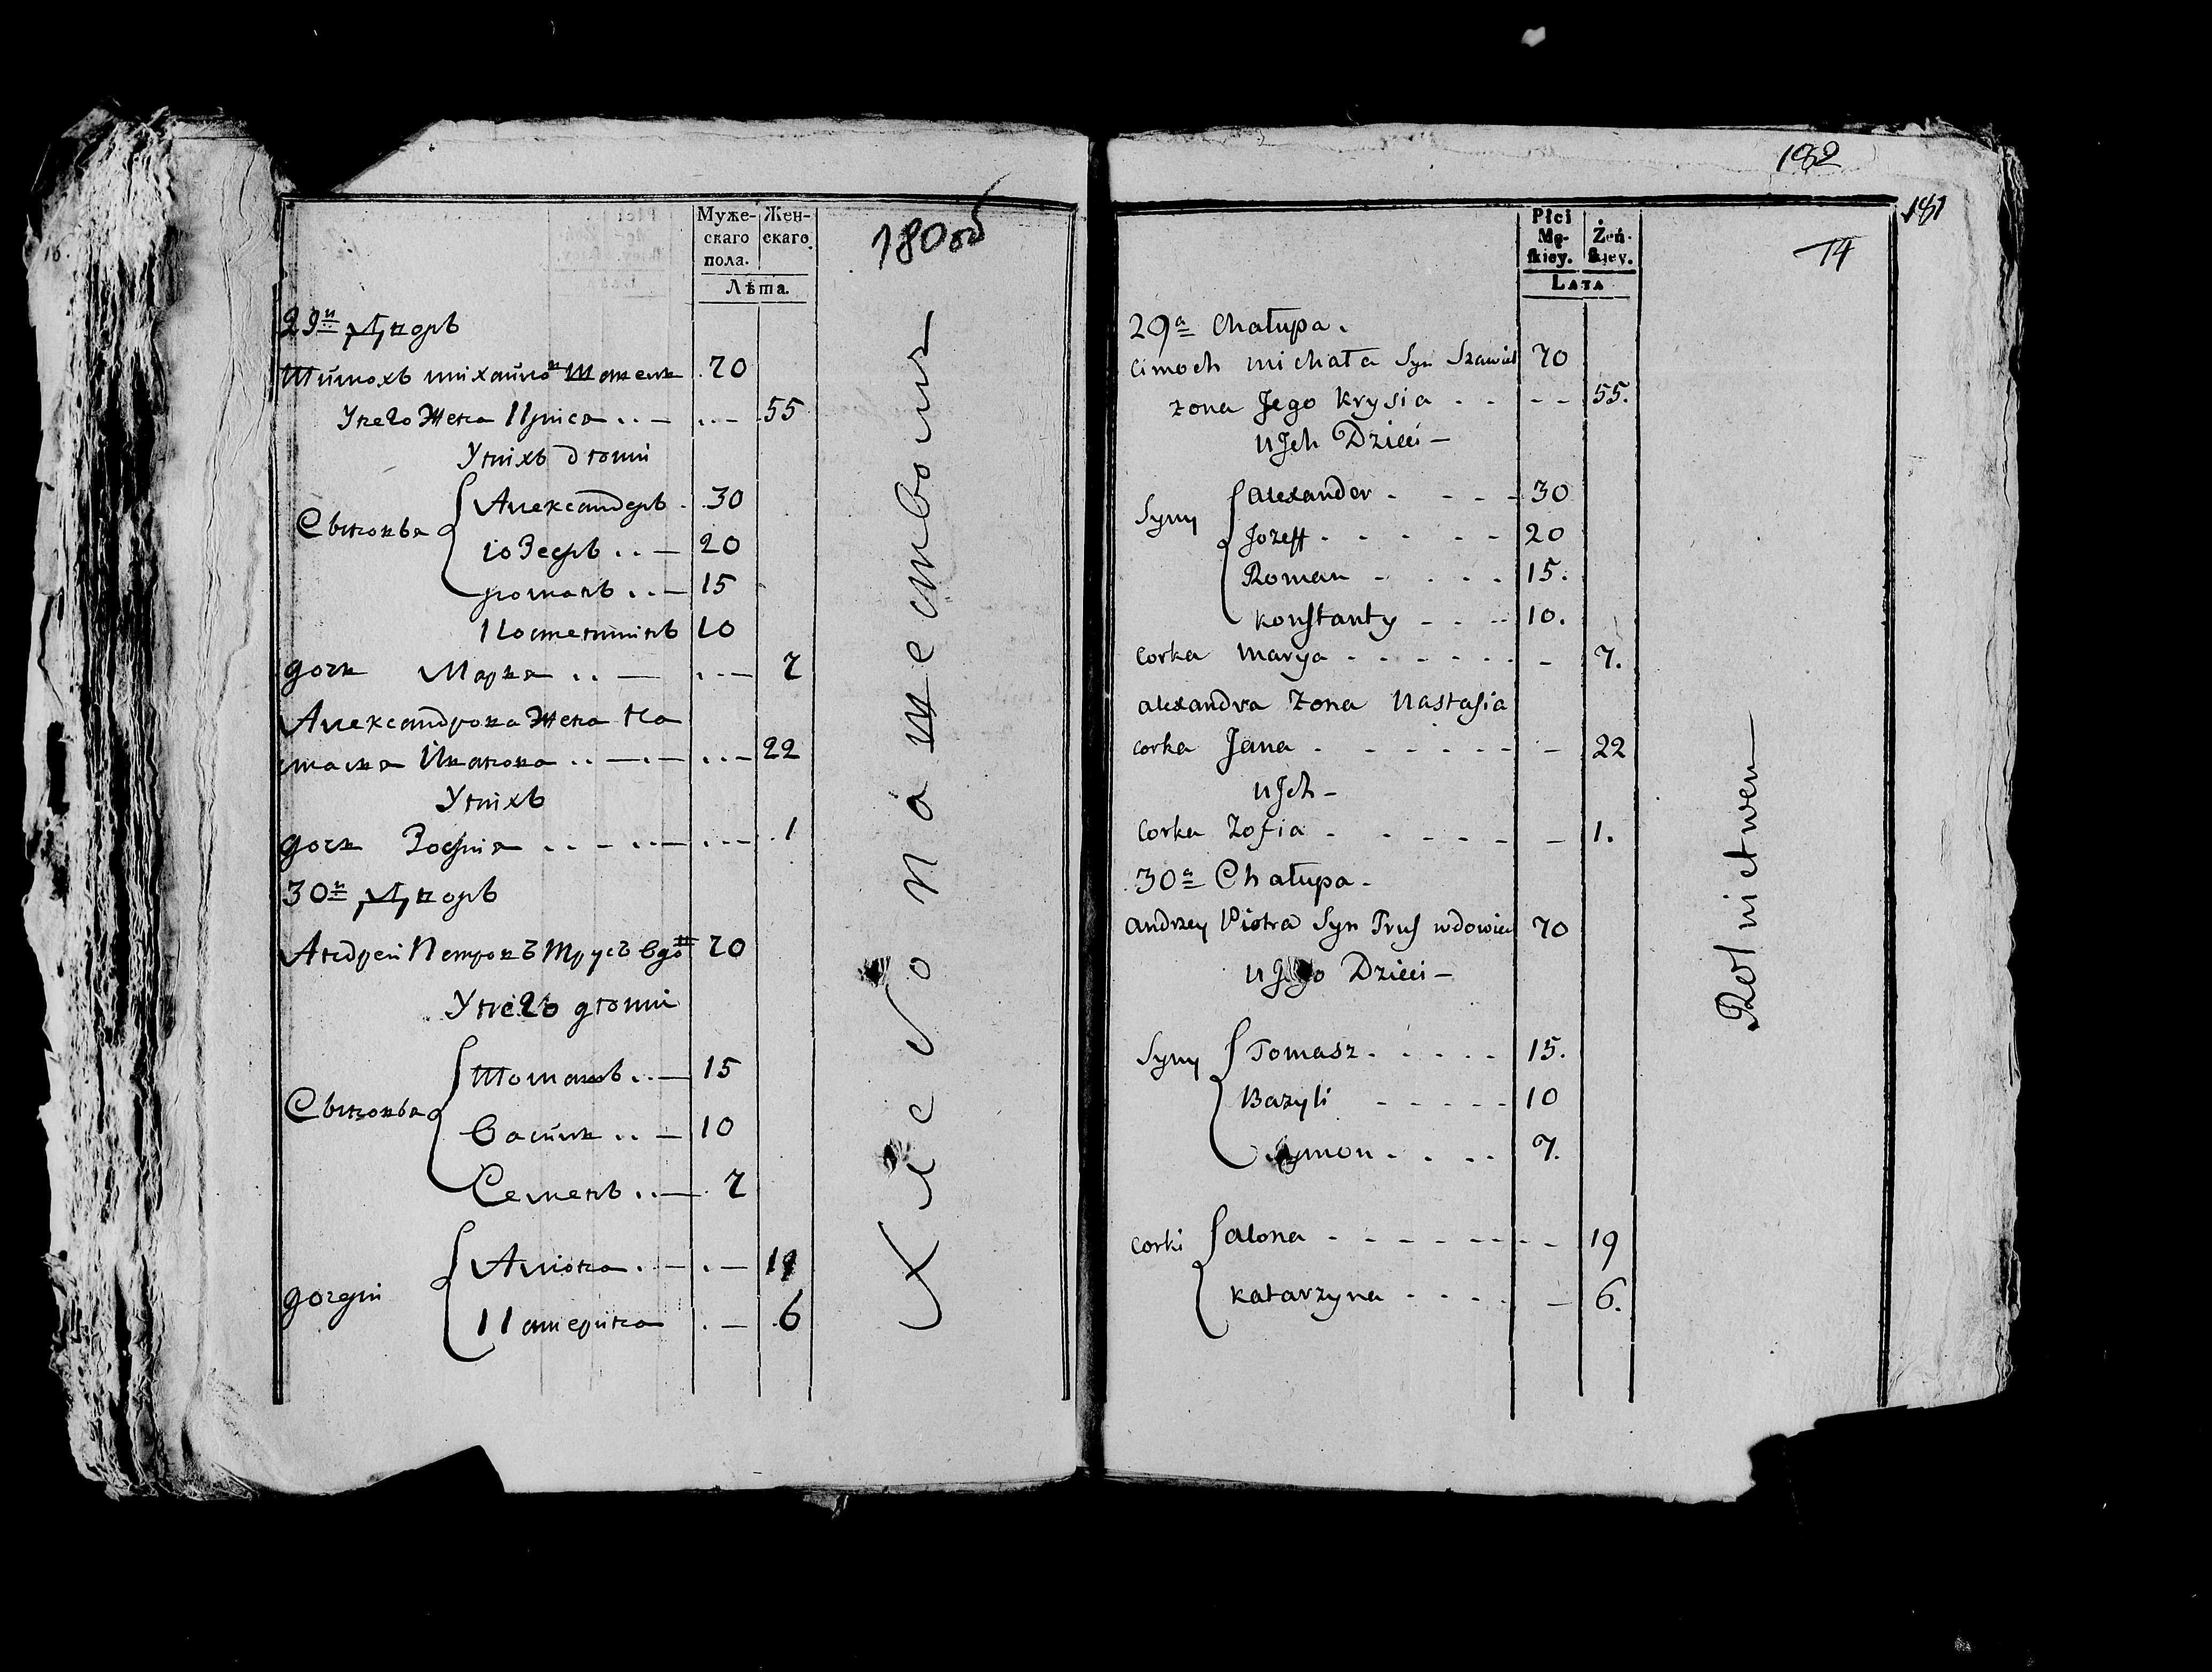 Муже-
скаго
пола.
Жен-
скаго.
Лѣта.
180об
29й Дворъ
Тимохъ михайло 70
У него Жена Криса 55
У нихъ дѣти
Сыновья
Александеръ 30
іозефъ 20
романъ 15
Костентинъ 10
дочь Маря 7
Александрова Жена На
стася Иванова 22
У нихъ
дочь Зофия 1
30й Дворъ
Андрей Петровъ Трусъ вдо 70
У него дѣти
Сыновья
Томашъ 15
Василь 10
Семенъ 7
дочери
Алиона 19
Катерина 6
Хлебопашествомъ
182
181
14
Płci
Mę-
skiey.
Żeń-
skiey.
LATA
29a Chałupa.
Cimoch michała Syn 70
żona Jego Krysia 55.
u Jch Dzieci
Syny
alexander 30
Jozeff 20
Roman 15.
konstanty 10.
corka Marya 7.
alexandra żona Nastasia
corka Jana 22
u Jch
Corka Zofia 1.
30a Chałupa.
andrzey Piotra Syn Trus wdowiec 70
u Jego Dzieci
Syny
Tomasz 15.
Bazyli 10
Symon 7.
corki
alona 19
katarzyna 6.
Rolnictwem